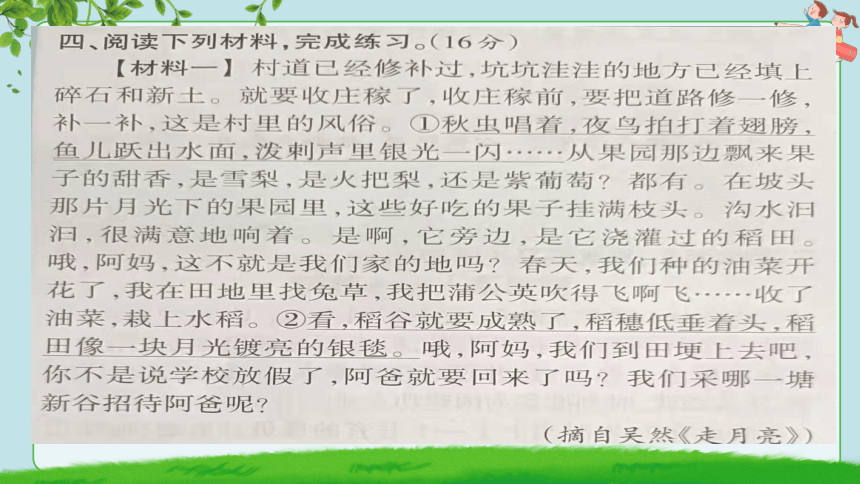 四、阅读下列材料,完成练习。(16分)
【材料一】 村道已经修补过,坑坑洼洼的地方已经填上
碎石和新土。就要收庄稼了,收庄稼前,要把道路修一修,
补一补,这是村里的风俗。①秋虫唱着,夜鸟拍打着翅膀,
鱼儿跃出水面,泼剌声里银光一闪……从果园那边飘来果
子的甜香,是雪梨,是火把梨,还是紫葡萄?都有。在坡头
那片月光下的果园里,这些好吃的果子挂满枝头。沟水汩
汩,很满意地响着。是啊,它旁边,是它浇灌过的稻田。
哦,阿妈,这不就是我们家的地吗?春天,我们种的油菜开
花了,我在田地里找兔草,我把蒲公英吹得飞啊飞……收了
油菜,栽上水稻。②看,稻谷就要成熟了,稻穗低垂着头,稻
田像一块月光镀亮的银毯。哦,阿妈,我们到田埂上去吧,
你不是说学校放假了,阿爸就要回来了吗?我们采哪一塘
新谷招待阿爸呢?
(摘自吴然《走月亮》)